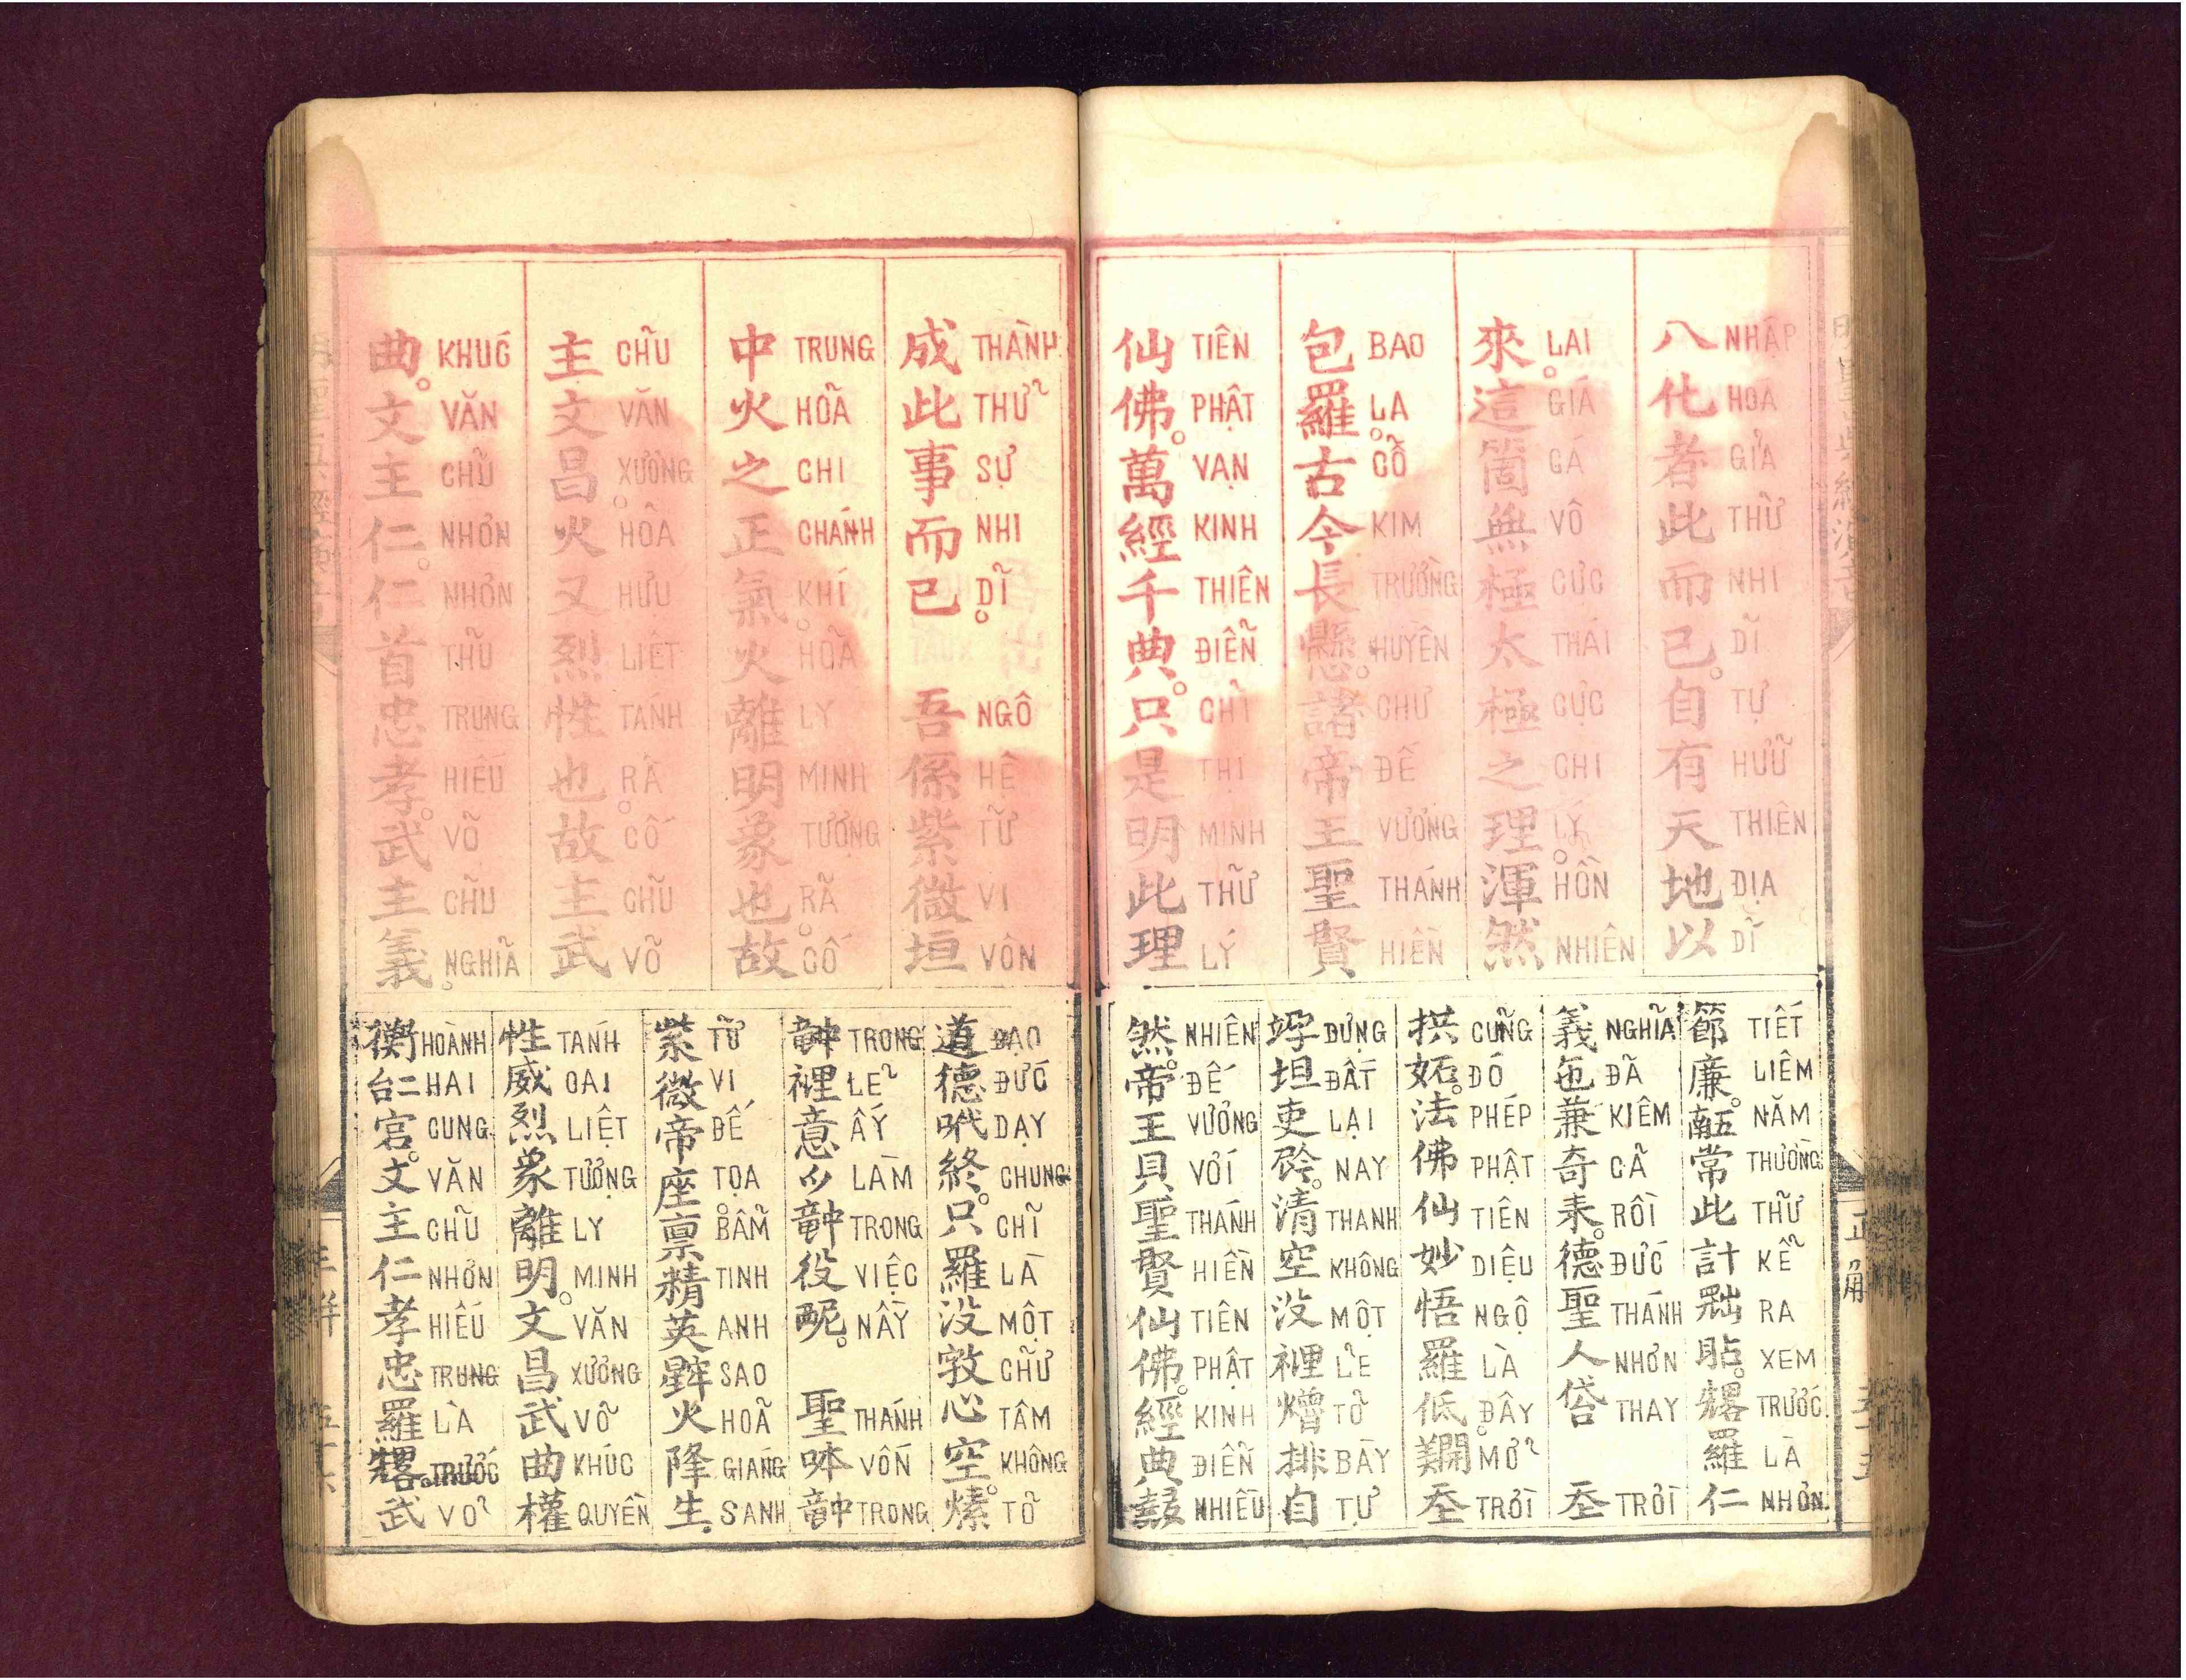 入化者此而已。自有天地以
NHẬP HÓA GIẢ THỬ NHI DĨ TỰ HỮU THIÊN ĐỊA DĨ
來。這箇無極太極之理。渾然
LAI GIÁ GÁ VÔ CỰC THÁI CỰC CHI LÝ HỒN NHIÊN
包羅。古今長懸。諸帝王聖賢
BAO LA CỔ KIM TRƯỜNG HUYỀN CHƯ ĐẾ VƯƠNG THÁNH HIỀN
仙佛。萬經千典。只是明此理
TIÊN PHẬT VẠN KINH THIÊN ĐIỂN CHỈ THỊ MINH THỬ LÝ
節廉。𠄼常此計𦋦䀡。𠓀羅仁
TIẾT LIÊM NĂM THƯỜNG THỬ KỂ RA XEM TRƯỚC LÀ NHƠN
義㐌兼奇耒。德聖人 𡗶
NGHĨA ĐÃ KIÊM CẢ RỒI ĐỨC THÁNH NHƠN THAY TRỜI
拱妬。法佛仙妙悟羅低。𨷑𡗶
CŨNG ĐÓ PHÉP PHẬT TIÊN DIỆU NGỘ LÀ ĐÂY MỞ TRỜI
𥩯坦吏𫢩。清空没𥚄熷排自
DỰNG ĐẤT LẠI NAY THANH KHÔNG MỘT LẼ TỎ BÀY TỰ
然。帝王貝聖賢仙佛。經典
NHIÊN ĐẾ VƯƠNG VỚI THÁNH HIỀN TIÊN PHẬT KINH ĐIỂN NHIỀU
成此事而已。吾係紫微垣
THÀNH THỬ SỰ NHI DĨ NGÔ HỆ TỬ VI VÔN
中火之正氣。火離明象也。故
TRUNG HỎA CHI CHÁNH KHÍ HỎA LY MINH TƯỢNG RÃ CỐ
主文昌。火又烈性也。故主武
CHỦ VĂN XƯƠNG HỎA HỰU LIỆT TÁNH RÃ CỐ CHỦ VÕ
曲。文主仁。仁首忠孝。武主義。
KHÚC VĂN CHỦ NHƠN NHƠN THỦ TRUNG HIẾU VÕ CHỦ NGHĨA
道德𠰺終。只羅没 心空。
ĐẠO ĐỨC DẠY CHUNG CHỈ LÀ MỘT CHỮ TÂM KHÔNG TỎ
𥪝𥚄意𫜵𥪝役 聖 𥪝
TRONG LẼ ẤY LÀM TRONG VIỆC NẦY THÁNH VỐN TRONG
紫微帝座。稟精英𣋀火降生
TỬ VI ĐẾ TỌA BẨM TINH ANH SAO HỎA GIÁNG SANH
性威烈象離明。文昌武曲權
TÁNH OAI LIỆT TƯỢNG LY MINH VĂN XƯƠNG VÕ KHÚC QUYỀN
衡𠄩宮。文主仁孝忠羅𠓀。武
HOÀNH HAI CUNG VĂN CHỦ NHƠN HIẾU TRUNG LÀ TRƯỚC VÕ